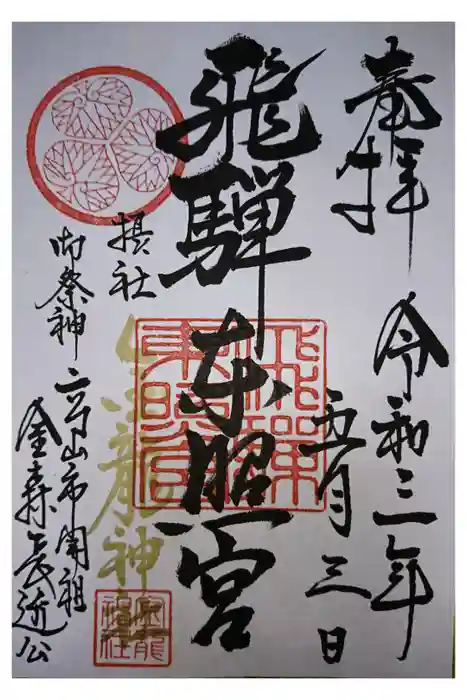 奉拝
令和三年
五月三日
飛騨東照宮
飛騨東照宮
摂社
金龍神社
金龍神社
御祭神 高山市開祖
金森長近公